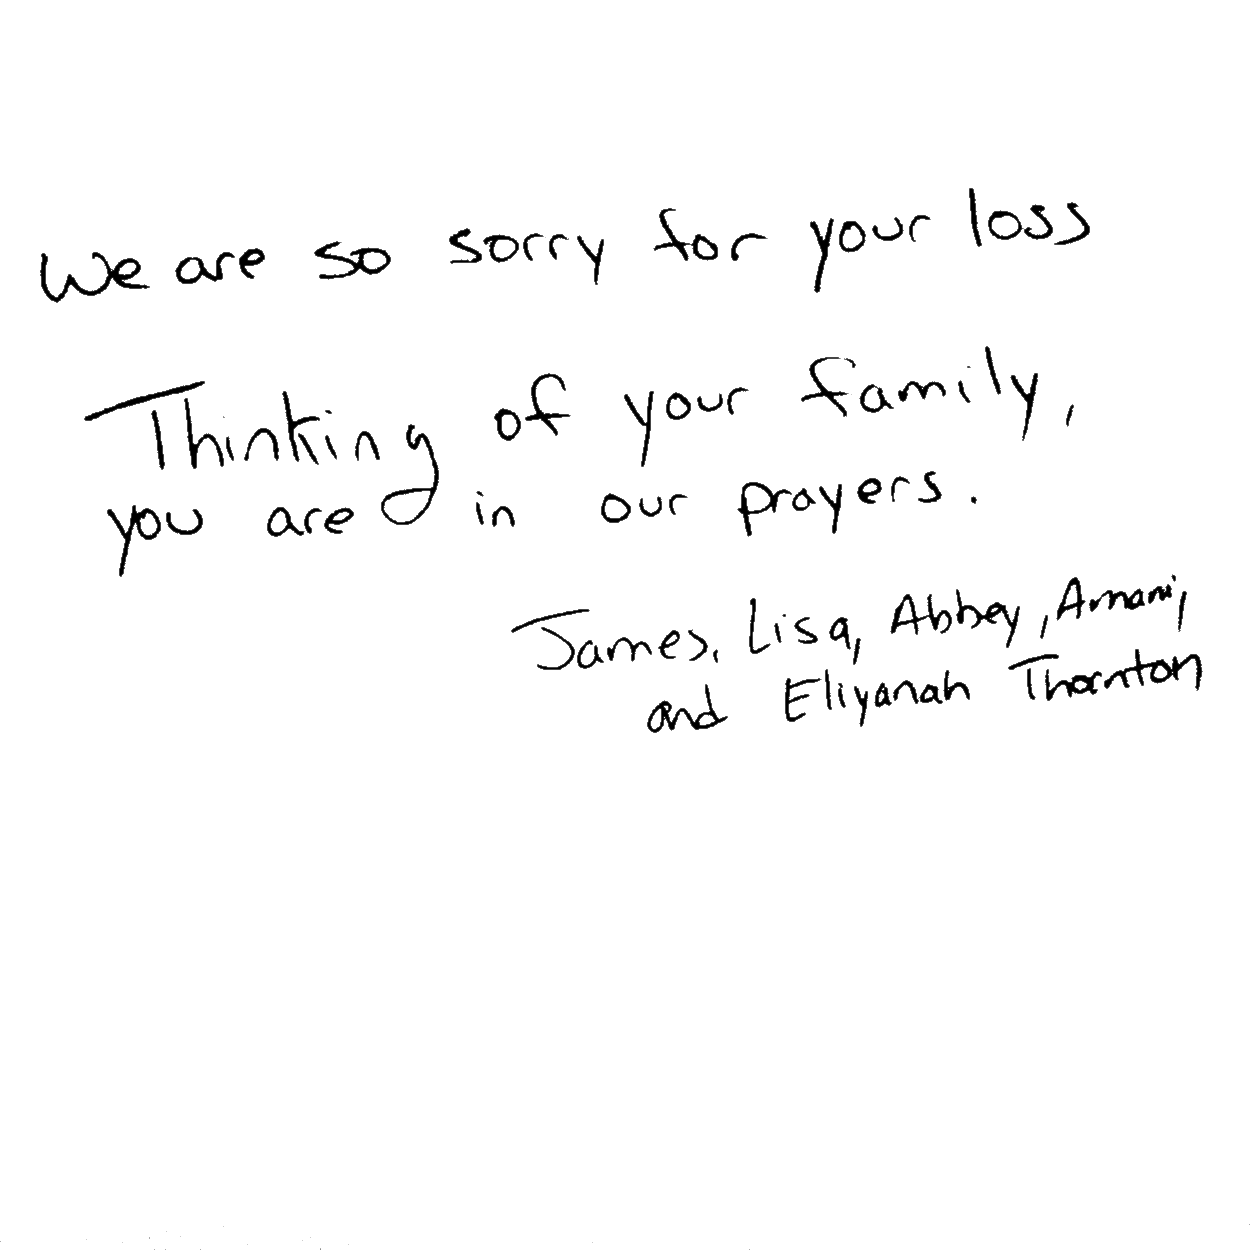 We are so sorry for your loss
Thinking of your family,
you are in our prayers.
James, Lisa, Abbey, Amani,
and Eliyanah Thornton